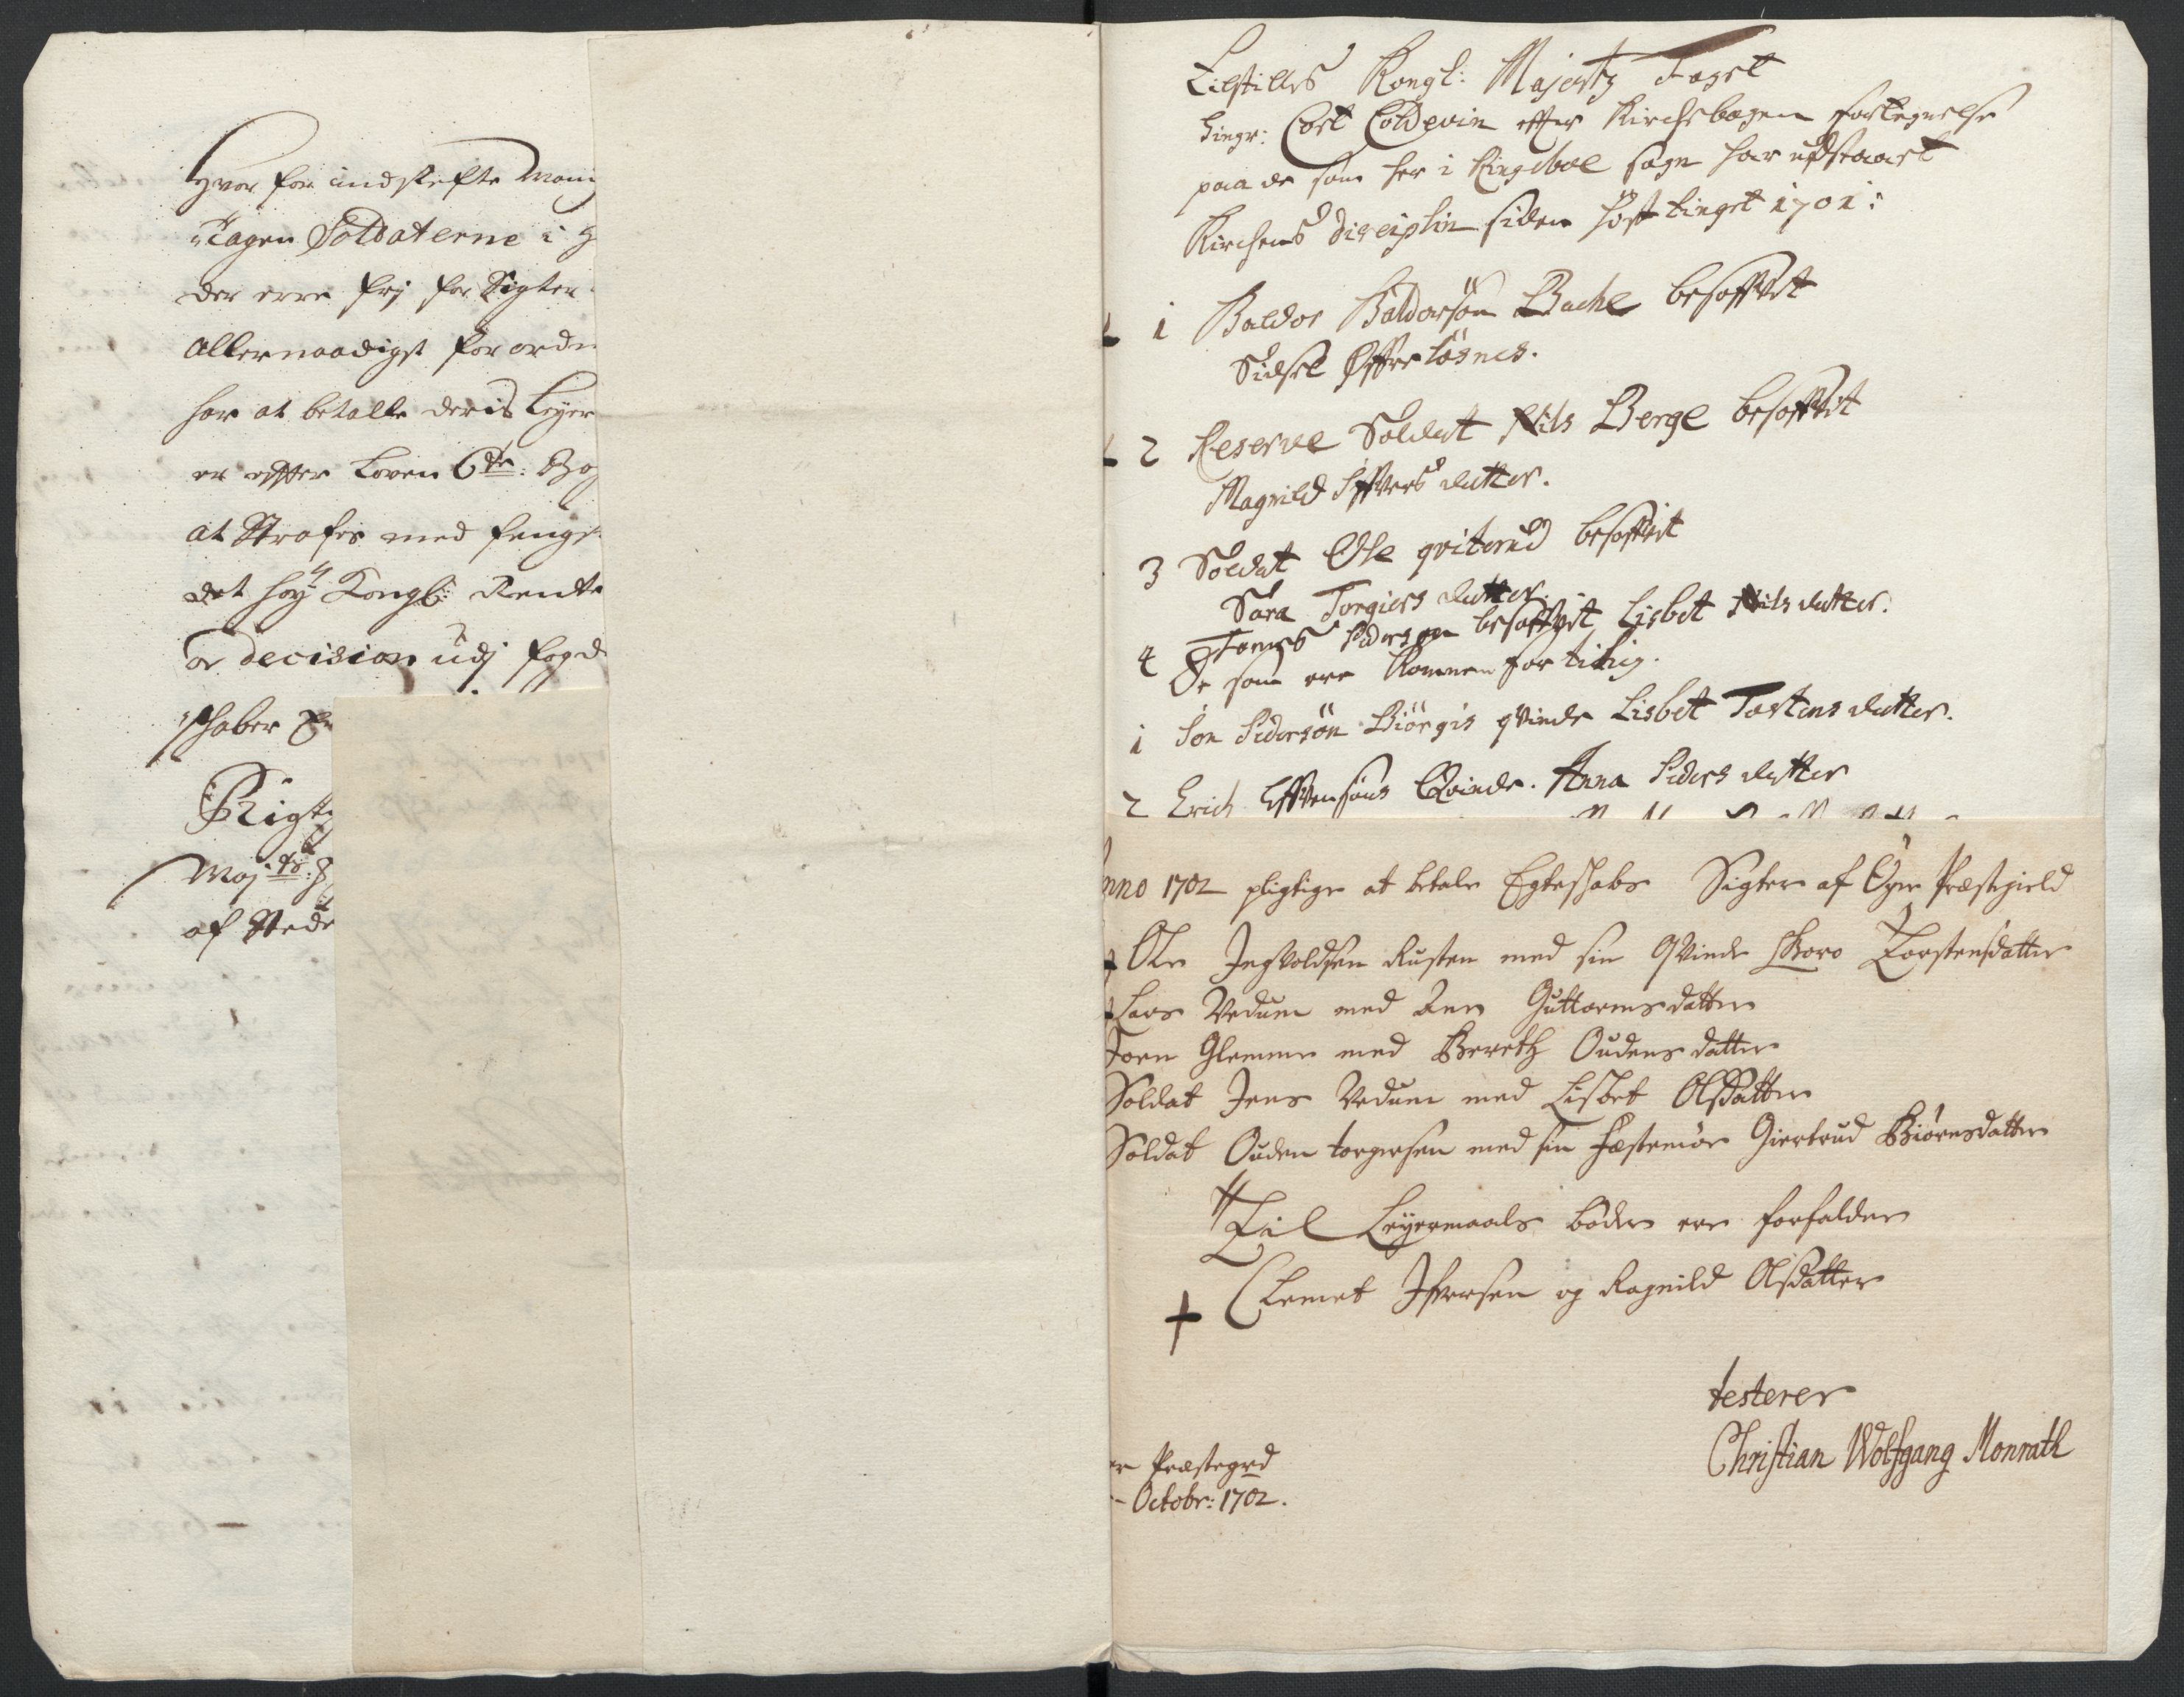 Hvor for indstefte Mom
tagen Soldaterne i H
der erre frj for Sigter
Allernaadigst forordn
har at betalle deris Leyer
er effter Loven 6te: Bog
at Straffis med fenge
det høy Kongl: Rente
or decision udj fogd
schaber
Rigt
Maj ts:
af Stede
Tilstilles Kongl: Majestz Fogst
Singr: Cort Coldevin effter Kirchebogen fortegnelse
paa de som her i Ringeboe sogn har udstaaet
Kirchens disciplin siden høst tinget 1701:
1 Baldor Baldorsøn Bache besoffvet
Sidsel Øffre løsnes.
2 Reserve Soldat Nils Berge besoffvet
Magnild Iffvers datter.
3 Soldat Ole qviterud besoffvet
Sara Torgiers datter.
4 Tomes Pedersøn besoffvet Lisbet Nils datter.
De som ere komne for tilig.
1 Jon Pedersøn Biørgis qvinde Lisbet Torstens datter.
2 Erich Effvensøns Qvinde. Anna Peders datter
nno 1702 pligtige at betale Egteskabs Sigter af Øyer Præstegield
Ole Ingvoldsen Rusten med sin Qvinde Goro Torstensdatter
Lars Vedum med Ane Guttormsdatter
Joen Glemme med Bereth Oudens datter
Soldat Jens Vedum med Lisbet Olsdatter
Soldat Ouden torgersen med sin Fæstemøe Giertrud Biørnsdatter
Til Leyermaals bøder ere forfalden
Clemet Ifversen og Ragnild Olsdatter
testerer
Christian Wolfgang Monrath
er Præstegrd
Octobr: 1702.